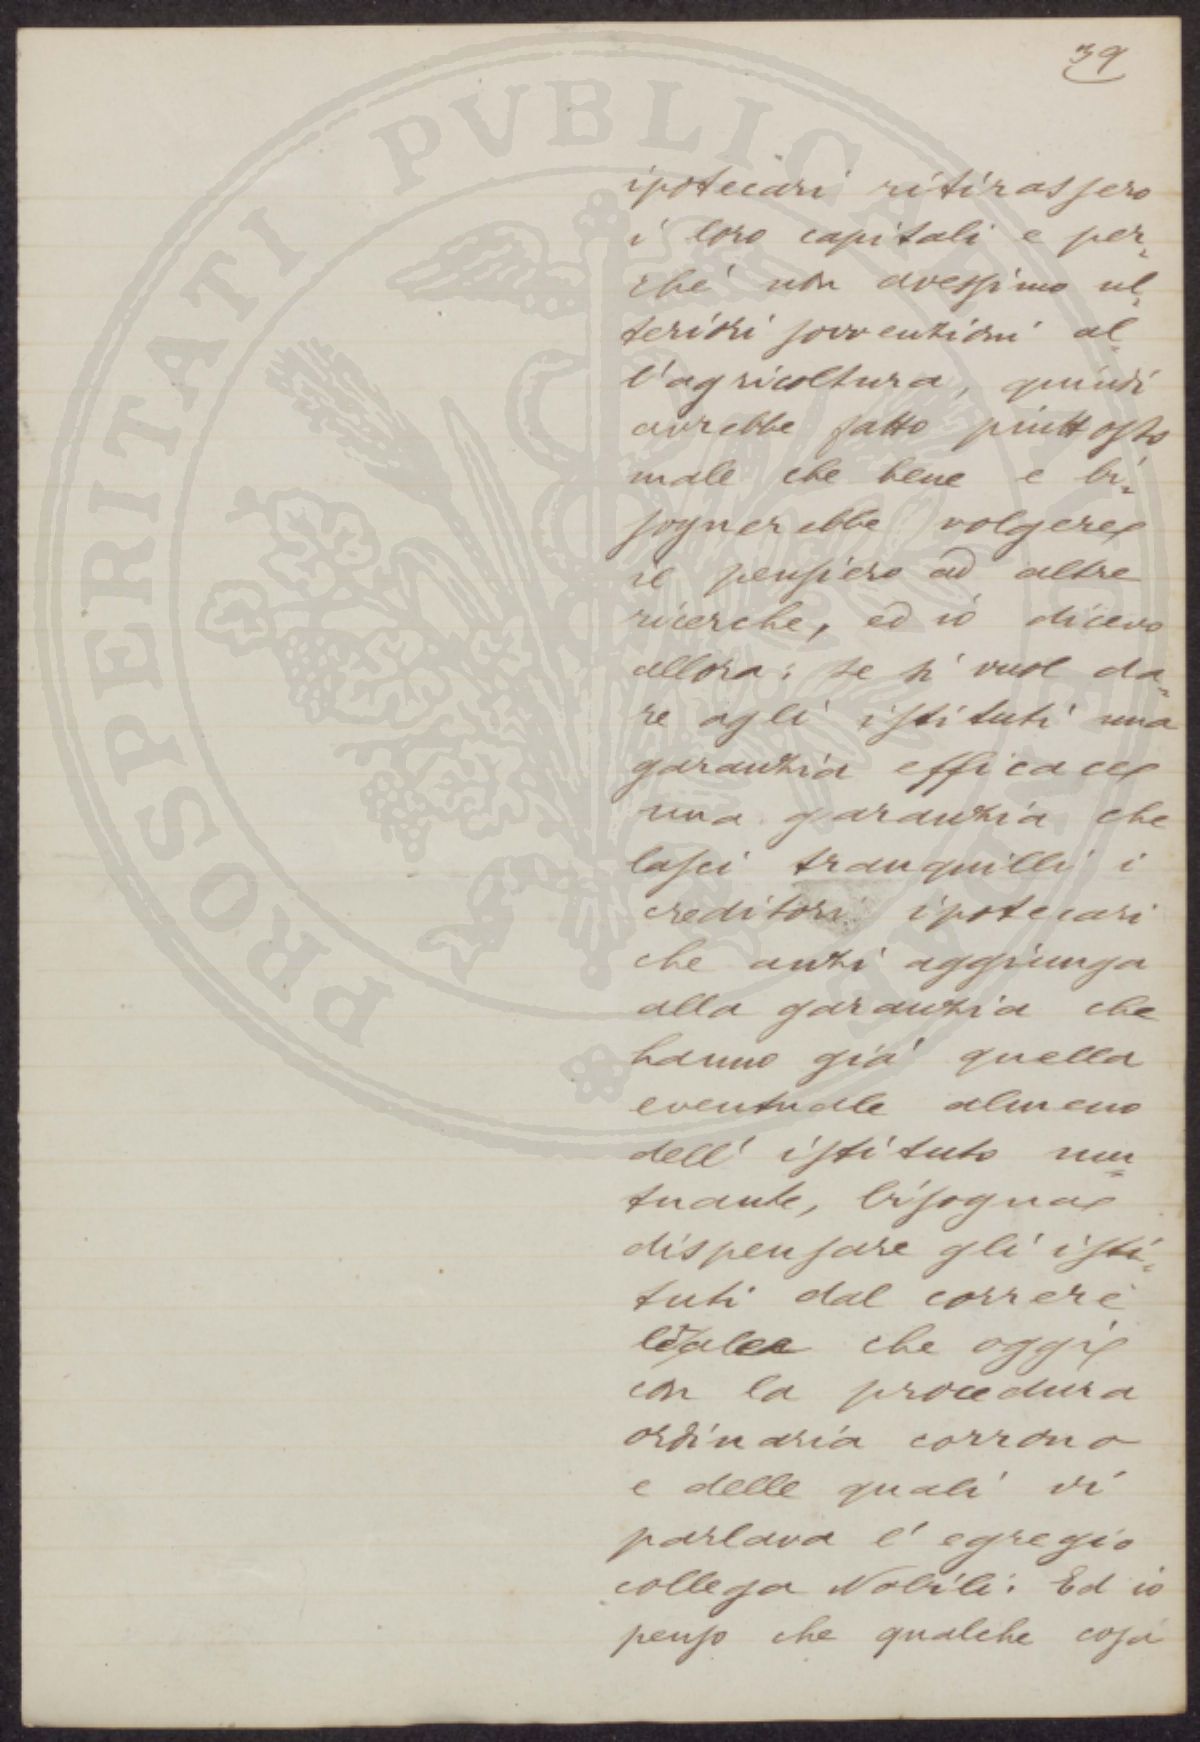 39
ipotecari ritirassero
i loro capitali e per=
ché non avessimo ul=
teriori sovvenzioni al=
l'agricoltura, quindi
avrebbe fatto piuttosto
male che bene e bi=
sognerebbe volgere
il pensiero ad altre
ricerche, ed io dicevo
allora: se si vuol da=
re agli istituti una
garanzia efficace
una garanzia che
lasci tranquilli i
creditori ipotecari
che anzi aggiunga
alla garanzia che
hanno già quella
eventuale almeno
dell'istituto mu=
tuante, bisogna
dispensare gli isti=
tuti dal correre
che oggi
con la procedura
ordinaria corrono
e delle quali vi
parlava l'egregio
collega Nobili: Ed io
penso che qualche cosa
PROSPERITATI PVBLICAE